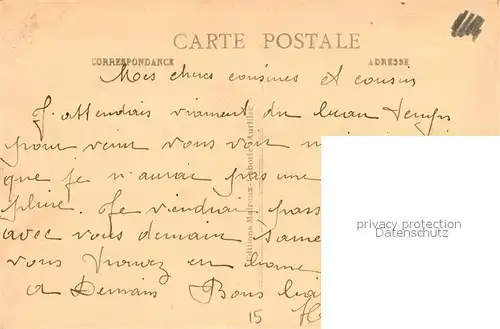 CARTE POSTALE
CORRESPONDANCE
ADRESSE
Mes chers cousines et cousin
J'attendais vraiment du beau temps
pour venir vous voir
que je n'aurai pas une
pluie. Je viendrai pass
avec vous demain same
vous trouvez en bonne
a Demain Bons bai
Editions Malroux
Aurillac
privacy protection
Datenschutz
15